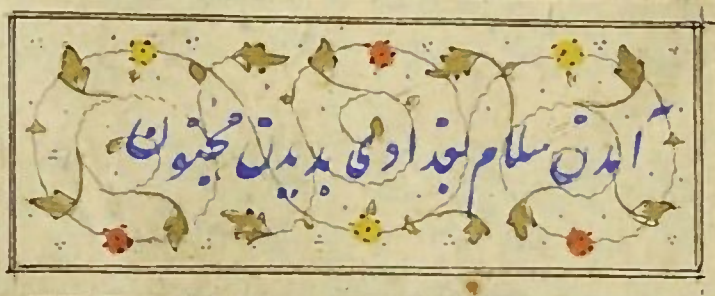 آمدن سلام بغدادی بدیدن مجنون